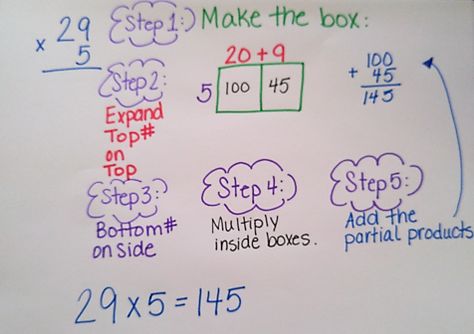 29
x 5
Step 1:
Make the box:
20 + 9
5 100 45
100
+ 45
145
Step 2:
Expand
Top#
on
Top
Step 3:
Bottom#
on side
Step 4:
Multiply
inside boxes.
Step 5:
Add the
partial products
29 x 5 = 145